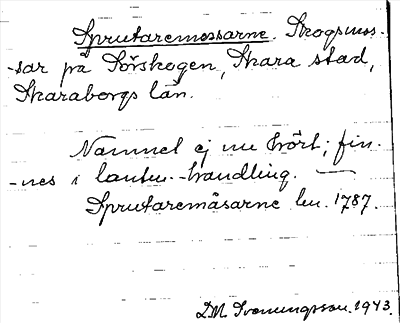 Sprutaremossarne. Skogsmos-
-sar på Sörskogen, Skara stad,
Skaraborgs län.
Namnet ej nu hört; fin-
-nes i lantm.-handling.
Sprutaremåsarne lm. 1787.
D.M. Svenningsson. 1943.